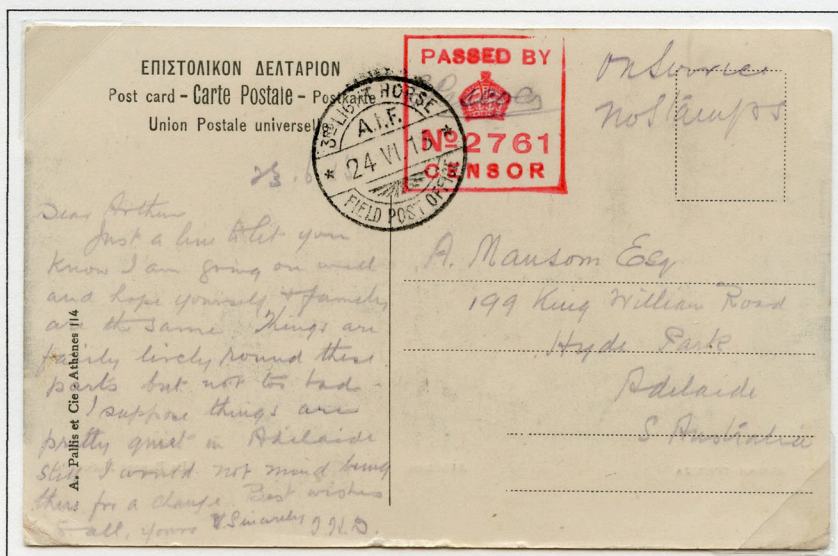 ΕΠΙΣΤΟΛΙΚΟΝ ΔΕΛΤΑΡΙΟΝ
Post card – Carte Postale – Postkarte
Union Postale universelle
3RD LIGHT HORSE
A.I.F.
24 VI 15
FIELD POST OFFICE
PASSED BY
No 2761
CENSOR
On Service
No Stamps
23.6
Dear Arthur
Just a line to let you
know I am going on well
and hope yourself & family
are the same. Things are
fairly lively round these
parts but not too bad.
I suppose things are
pretty quiet in Adelaide
still I would not mind being
there for a change. Best wishes
to all, yours V Sincerely
A. Mansom Esq
199 King William Road
Hyde Park
Adelaide
S Australia
A. Pallis et Cie Athènes 114